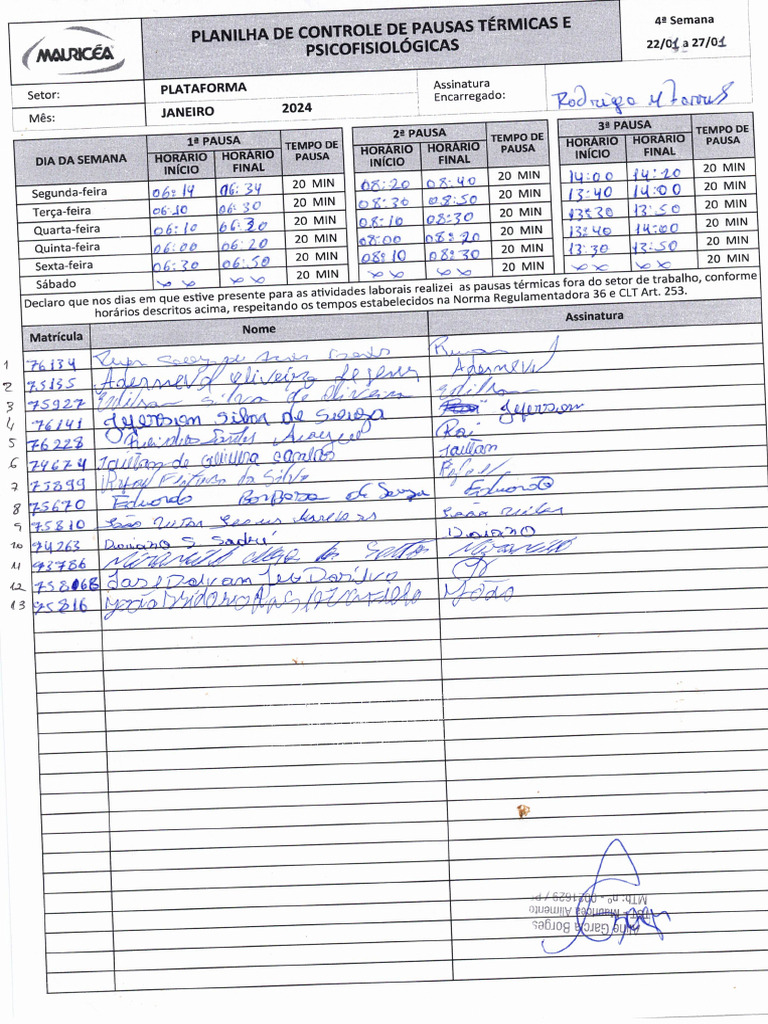 MAURICÉA
PLANILHA DE CONTROLE DE PAUSAS TÉRMICAS E
PSICOFISIOLÓGICAS
4ª Semana
22/01 a 27/01
Setor: PLATAFORMA
Mês: JANEIRO 2024
Assinatura
Encarregado: Rodrigo
DIA DA SEMANA
1ª PAUSA
HORÁRIO INÍCIO HORÁRIO FINAL
TEMPO DE PAUSA
2ª PAUSA
HORÁRIO INÍCIO HORÁRIO FINAL
TEMPO DE PAUSA
3ª PAUSA
HORÁRIO INÍCIO HORÁRIO FINAL
TEMPO DE PAUSA
Segunda-feira 06:14 06:34 20 MIN 08:20 08:40 20 MIN 14:00 14:20 20 MIN
Terça-feira 06:10 06:30 20 MIN 08:30 08:50 20 MIN 13:40 14:00 20 MIN
Quarta-feira 06:10 06:30 20 MIN 08:10 08:30 20 MIN 13:30 13:50 20 MIN
Quinta-feira 06:00 06:20 20 MIN 08:00 08:20 20 MIN 13:40 14:00 20 MIN
Sexta-feira 06:30 06:50 20 MIN 08:10 08:30 20 MIN 13:30 13:50 20 MIN
Sábado xx xx 20 MIN xx xx 20 MIN xx xx 20 MIN
Declaro que nos dias em que estive presente para as atividades laborais realizei as pausas térmicas fora do setor de trabalho, conforme
horários descritos acima, respeitando os tempos estabelecidos na Norma Regulamentadora 36 e CLT Art. 253.
Matrícula Nome Assinatura
1 76134
2 75135 Adernevol oliveira de Jesus
3 75927 Edilson Silva de Oliveira Edilson
4 76141 Jeferson Silva de Souza Jeferson
5 76228 Rai
6 74674 Jailton de oliveira Jailton
7 75899 da Silva Rafael
8 75670 Eduardo Barbosa de Souza Eduardo
9 75810 João Vitor
10 94263 Daiano S Daiano
11 93786 dos Santos
12 Jose Da Silva
13 75816 João João
Aline Garcia Borges
TST - Mauricea Alimento
MTb: nº - 0021629 / P